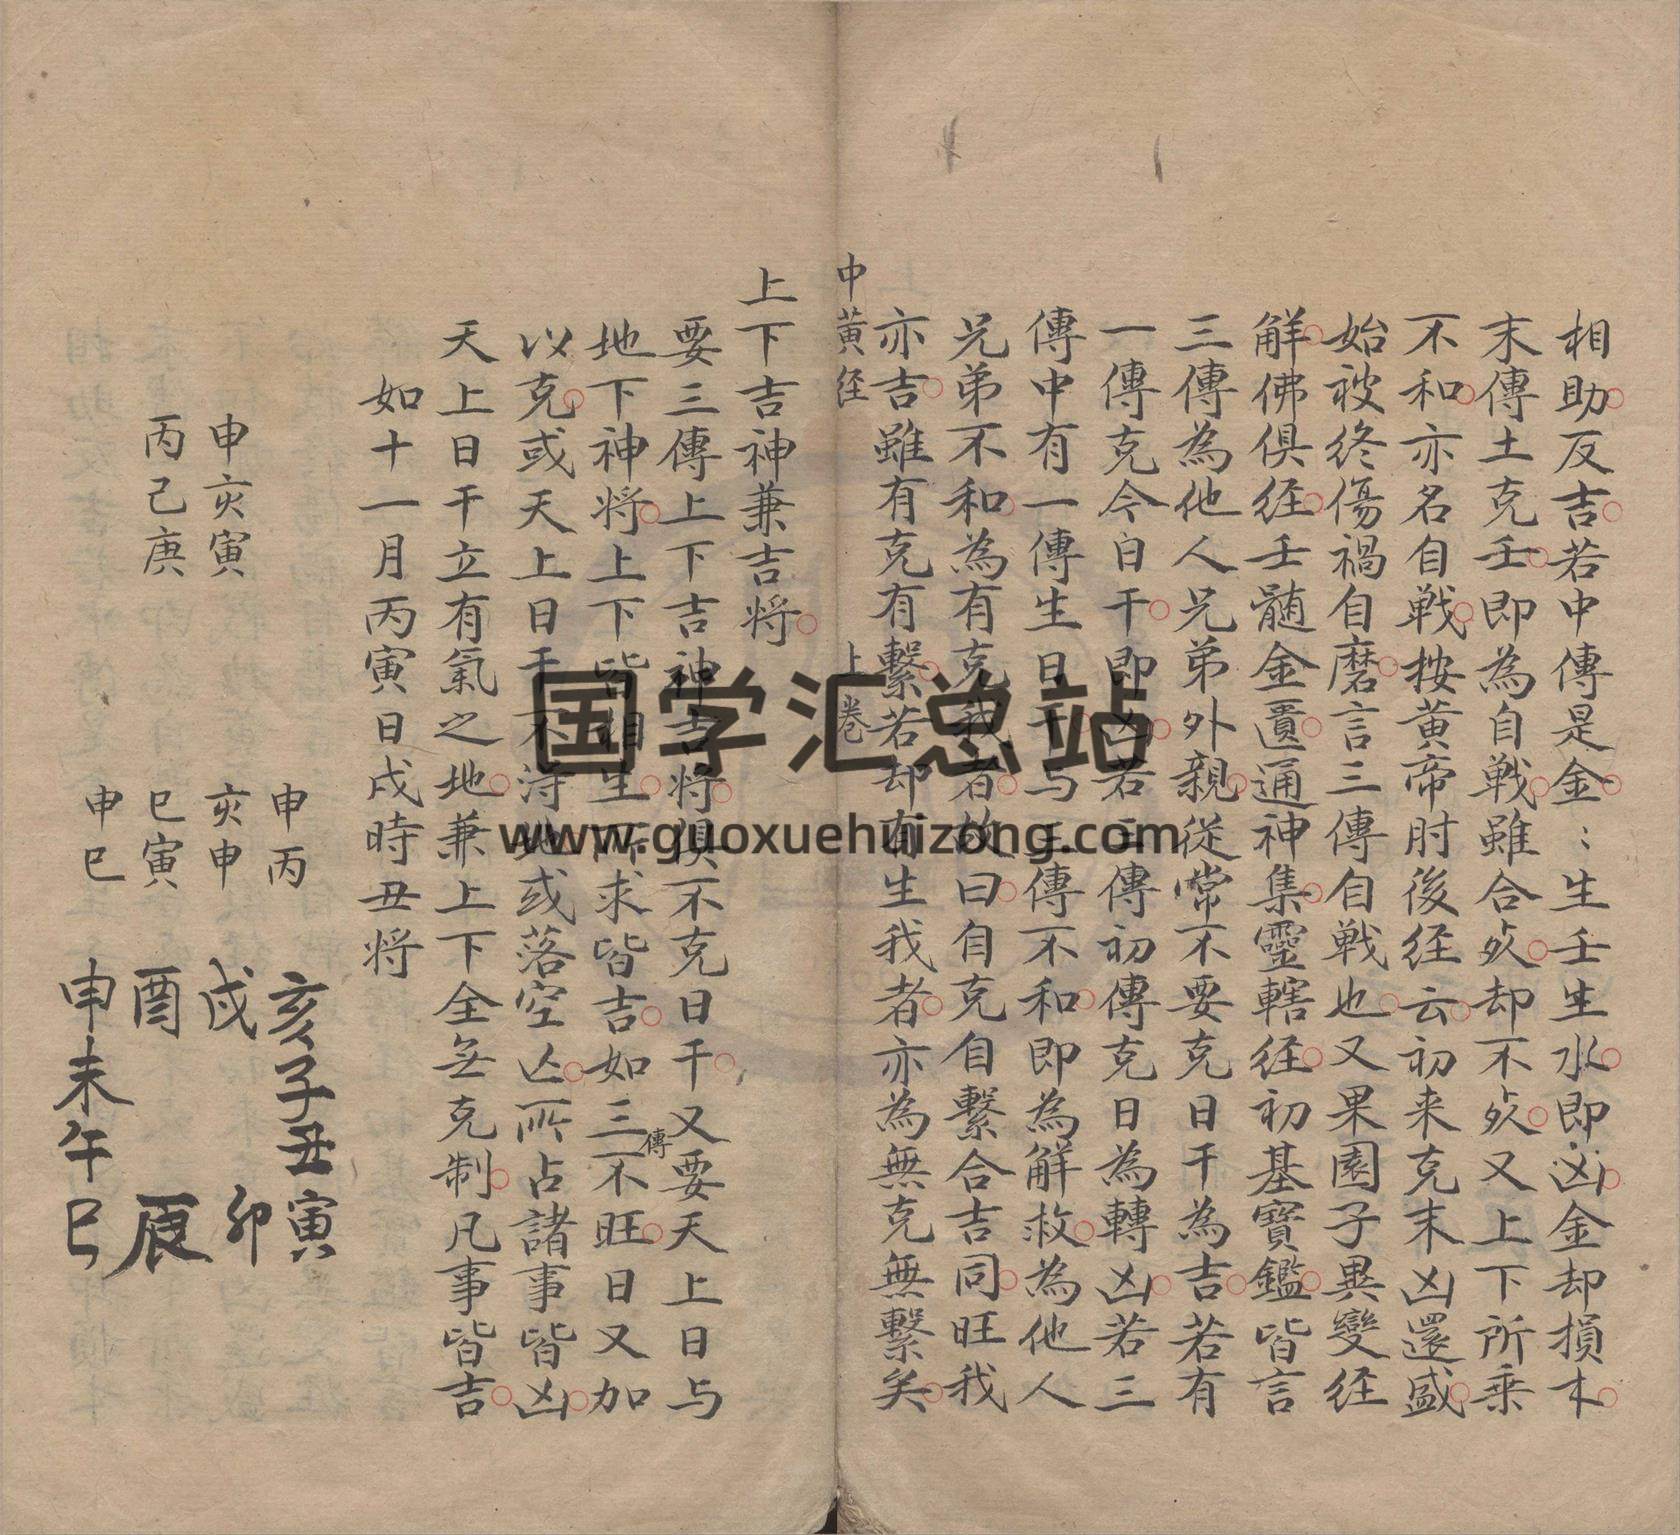 相助反吉若中傳是金：生壬生水即凶金却損木
末傳土克壬即為自戰雖合㱕却不㱕又上下所乘
不和亦名自戰按黄帝肘後经云初来克末凶還盛
始被终傷禍自磨言三傳自戰也又果園子異變经
解佛俱经壬髓金匱通神集靈轄经初基寳鑑皆言
三傳為他人兄弟外親從常不要克日干為吉若有
一傳克今白干即凶若三傳初傳克日為轉凶若三
傳中有一傳生日干与三傳不和即為解救為他人
兄弟不和為有克我者故曰自克自繫合吉同旺我
亦吉雖有克有繫若却有生我者亦為無克無繫矣
中黄经 上卷
上下吉神兼吉将
要三傳上下吉神吉将俱不克日干又要天上日与
地下神将上下皆相生所求皆吉如三傳不旺日又加
以克或天上日干不得地或落空亾所占諸事皆凶
天上日干立有氣之地兼上下全无克制凡事皆吉
如十一月丙寅日戌時丑将
申亥寅
丙己庚
申丙
亥申
巳寅
申巳
亥子丑寅
戌 卯
酉 辰
申未午巳
国学汇总站
www.guoxuehuizong.com